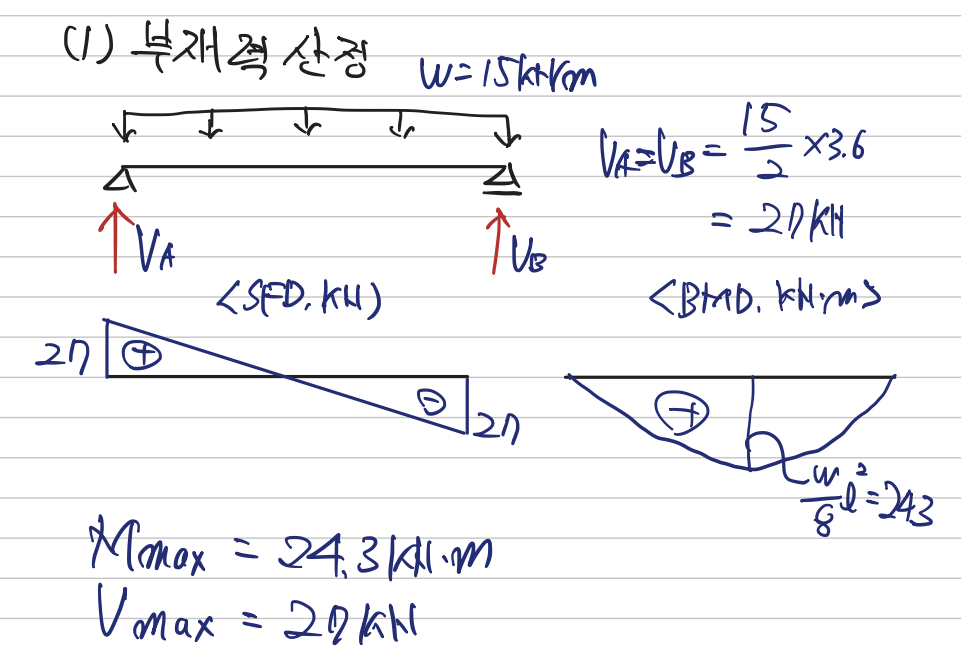 (1) 부재력 산정
W = 15kN/m
V_A = V_B = 15/2 × 3.6
= 27kN
V_A
V_B
<SFD. kN>
<BMD. kN·m>
27 ⊕
⊖ 27
⊕
w/8 l² = 24.3
Mmax = 24.3kN·m
Vmax = 27kN